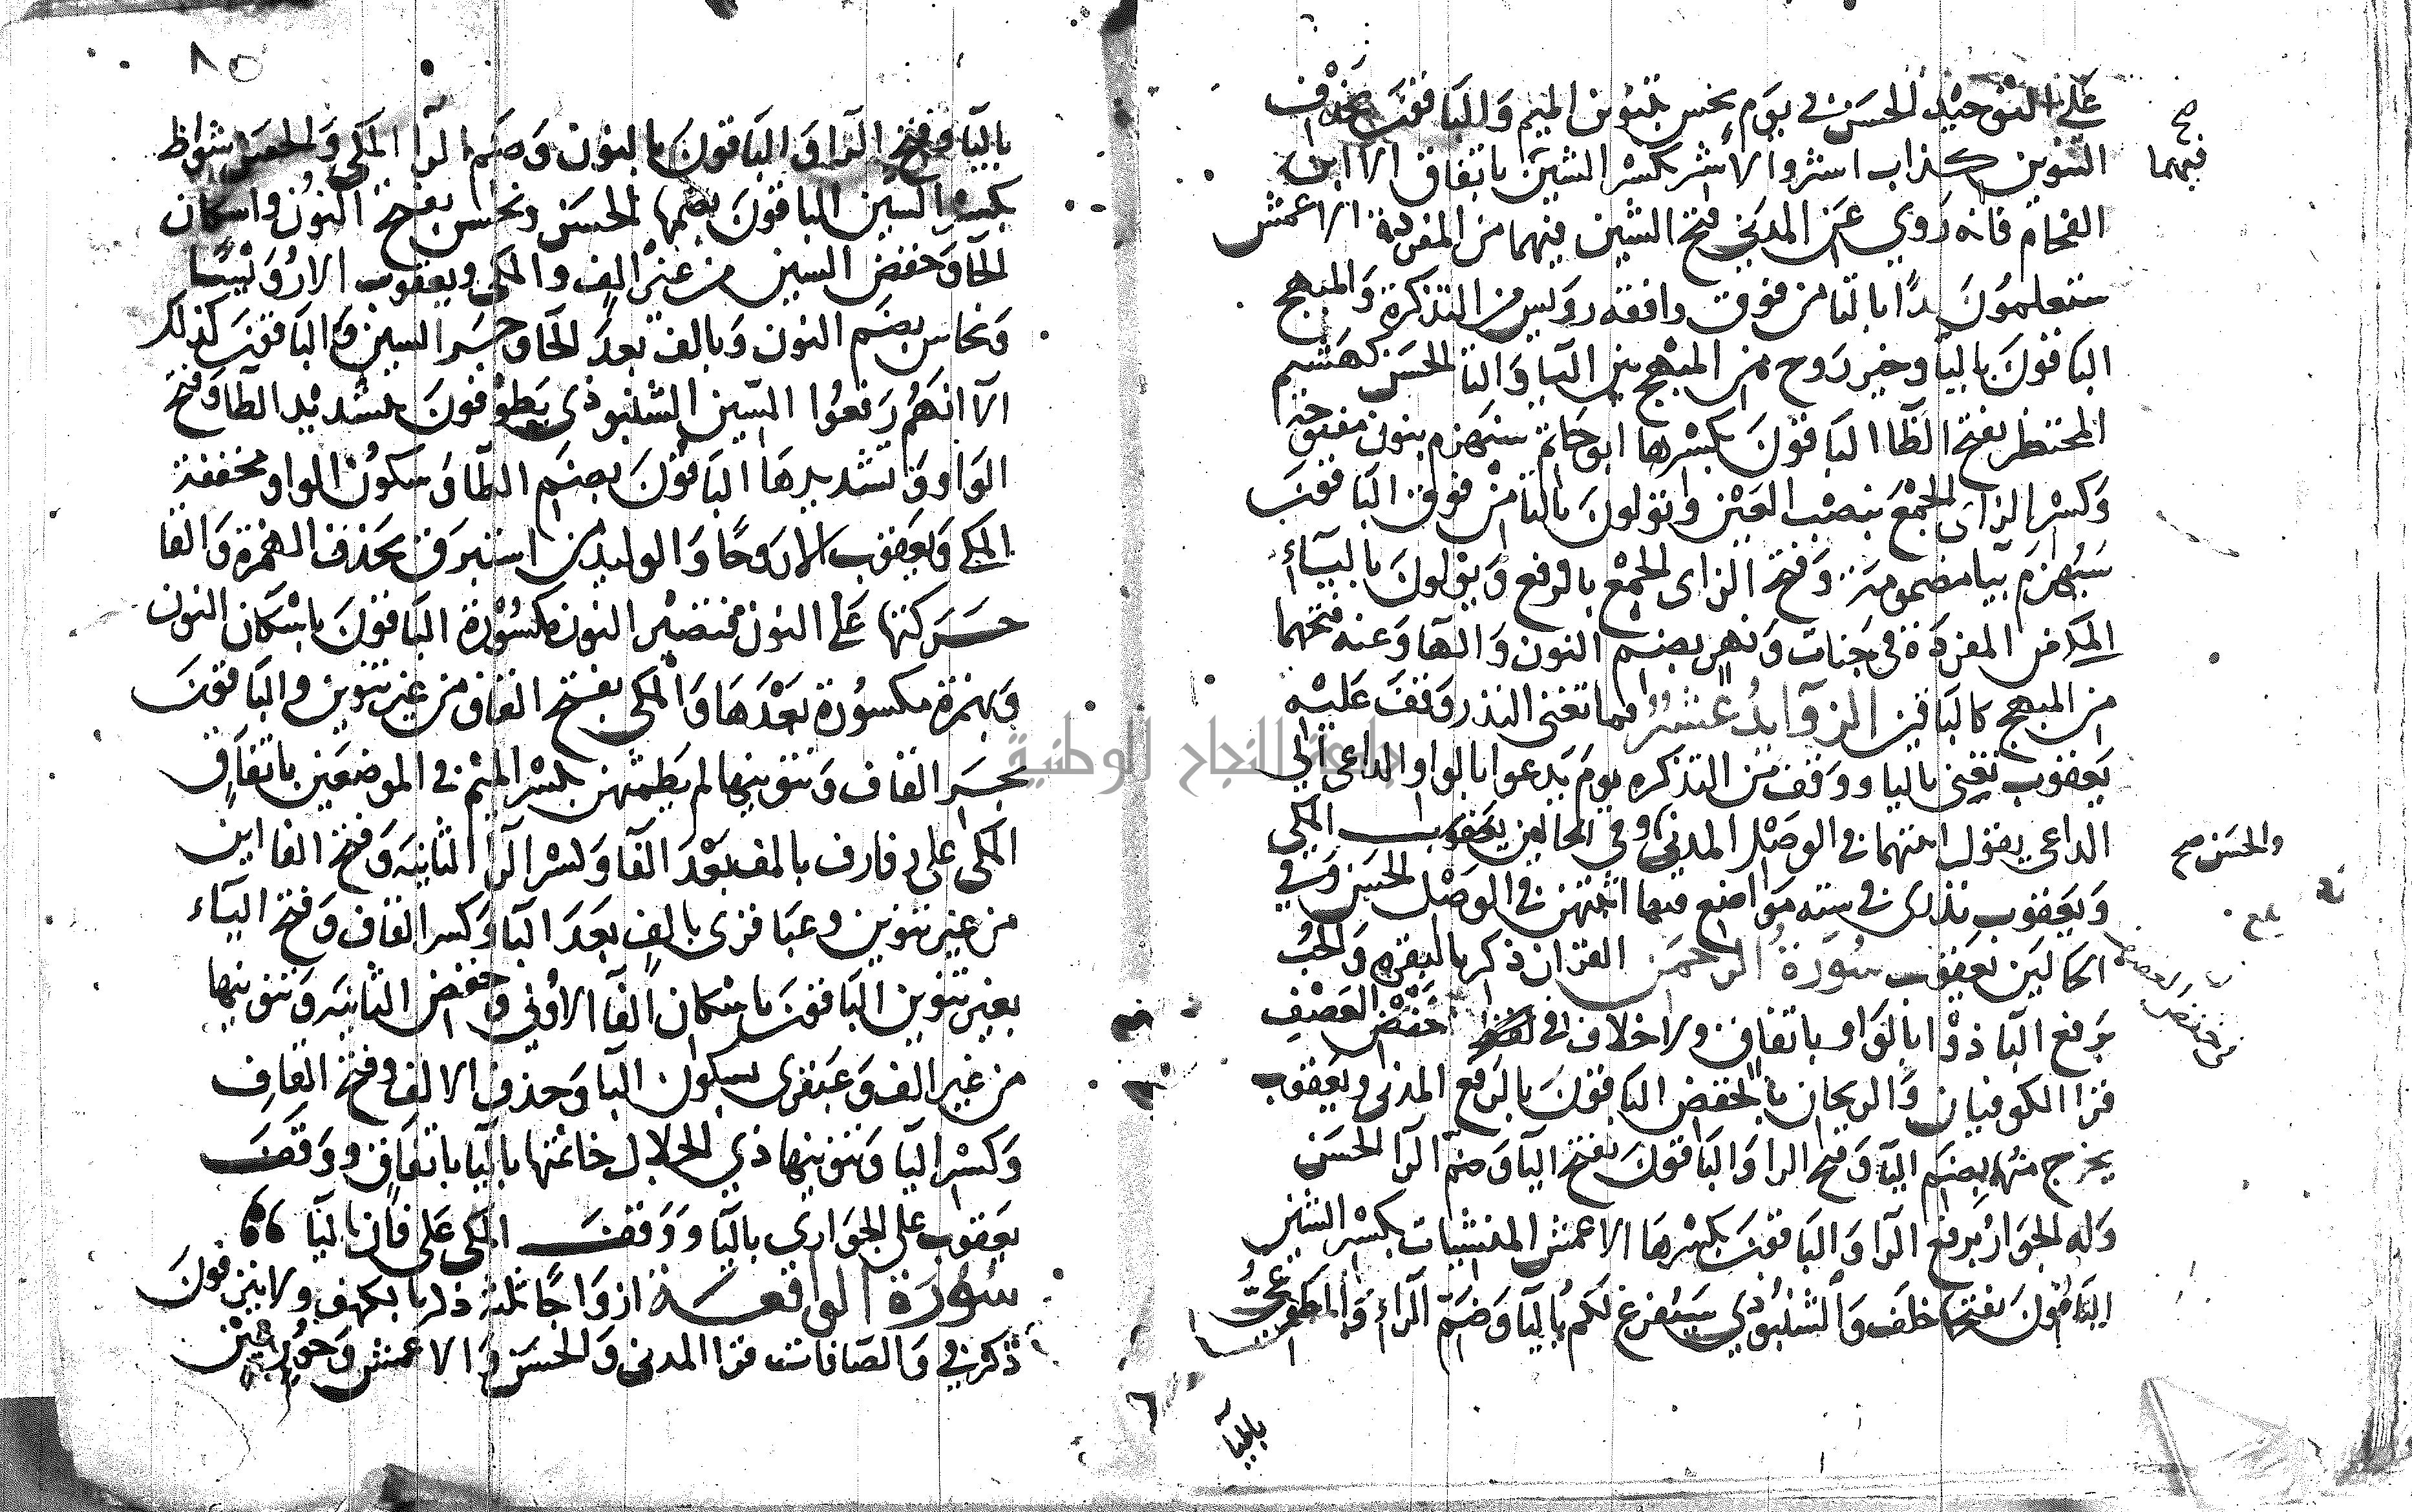 على التوحيد الحسن في يوم نحس بتنوين الميم والباقون بحذف
التنوين كذاب اشر والاشر بكسر الشين باتفاق الا ابن
الفحام فانه روي عن المدني فتح الشين فيهما من المفردة الاعمش
ستعلمون غدا بالتا من فوق وافقه رويس من التذكرة والمبهج
الباقون باليا وخير روح من المبهج بين اليا والتا الحسن كهشيم
المحتظر بفتح الظا الباقون بكسرها ابو حاتم سنهزم بنون مفتوحة
وكسر الزاى الجمع بنصب العين وتولون بالتا من فوق الباقون
سيهزم بيا مضمومة وفتح الزاى الجمع بالرفع ويولون بالياء
المكي من المفردة في جنات ونهر بضم النون والها وعنه فتحهما
من المبهج كالباقين الزوايد عشر فما تغنى النذر وقف عليه
يعقوب تغنى باليا ووقف من التذكره يوم يدعوا بالواو الداعي الى
الداعى يقول اثبتهما في الوصل المدني وفي الحالين يعقوب المكي
ويعقوب نذرى في سته مواضع فيها اثبتهن في الوصل الحسن وفي
الحالين يعقوب سورة الرحمن القران ذكر بالبقره والحب
برفع البا ذوا بالواو باتفاق ولا خلاف في خفض العصف
قرا الكوفيان والريحان بالخفض الباقون بالرفع المدنى ويعقوب
يخرج منهما بضم اليا وفتح الرا والباقون بفتح اليا وضم الرا الحسن
وله الجوار برفع الرا والباقون بكسرها الاعمش المنشيات بكسر الشين
الباقون بفتحها خلف والشنبوذي سيفرغ لكم باليا وضم الراء والمطوعي
صح
فيهما
والحسن صح
بالياء
٨٥
باليا وفتح الرا والباقون بالنون وضم الرا المكي والحسن شواظ
بكسر الشين الباقون بضمها الحسن ونحس بفتح النون واسكان
الحا وخفض السين من غير الف والمكي ويعقوب الا رويسا
ونحاس بضم النون وبالف بعد الحا وجر السين والباقون كذلك
الا انهم رفعوا السين الشنبوذى يطوفون بتشديد الطا وفتح
الواو وتشديدها الباقون بضم الطا وسكون الواو مخففة
المكي ويعقوب الا روحا والوليد من استبرق بحذف الهمزة والقا
حركتها على النون فتصير النون مكسورة الباقون باسكان النون
وبهمزة مكسورة بعدها والمكي بفتح القاف من غير تنوين والباقون
بجر القاف وتنوينها لم يطمثهن بكسر الميم في الموضعين باتفاق
المكي على رفارف بالف بعد الفا وكسر الرا الثانيه وفتح الفا اين
من غير تنوين وعباقرى بالف بعد البا وكسر القاف وفتح الياء
بغير تنوين الباقون باسكان الفا الاولى وخفض الثانيه وتنوينها
من غير الف وعبقرى بسكون البا وحذف الالف وفتح القاف
وكسر اليا وتنوينها ذي الجلال خاتمتها باليا باتفاق ووقف
يعقوب على الجواري باليا ووقف المكي على فان باليا
سورة الواقعة ازواجا ثلثة ذكر بالكهف ولا ينزفون
ذكر في والصافات قرا المدنى والحسن والاعمش وحور عين